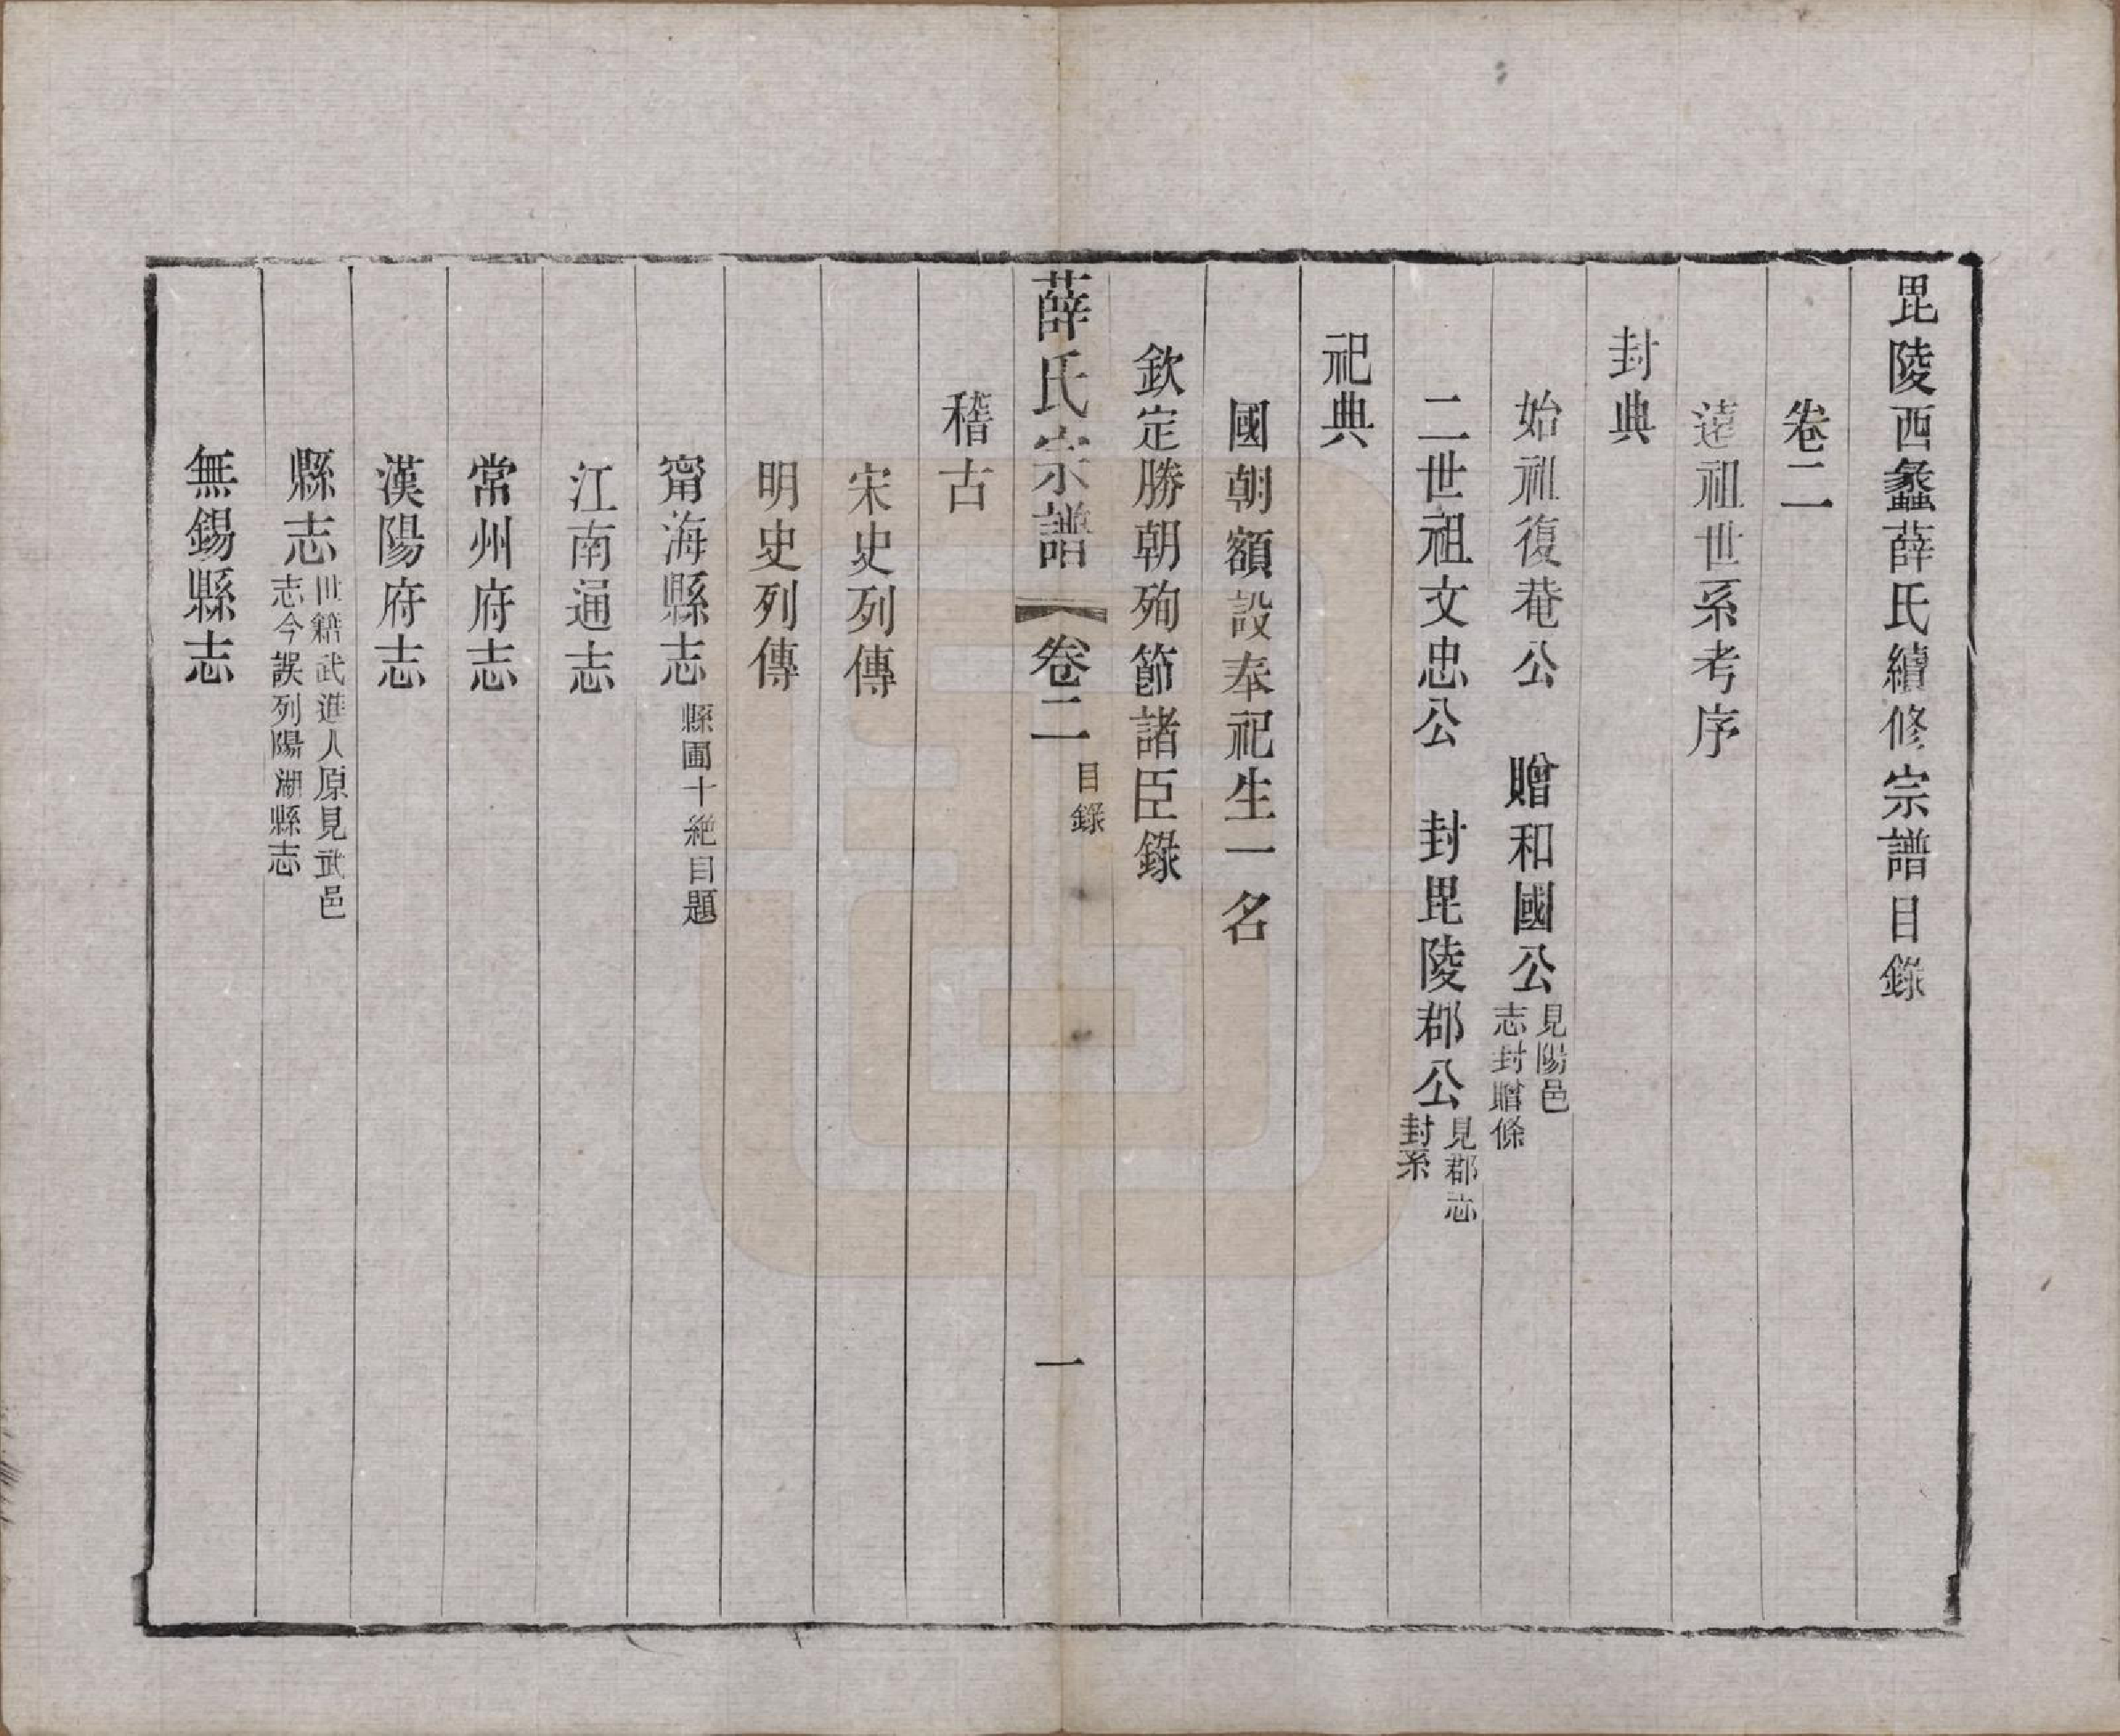 毘陵西蠡薛氏續修宗譜目錄
卷二
遠祖世系考序
封典
始祖復菴公　贈和國公見陽邑志封贈條
二世祖文忠公　封毘陵郡公見郡志封系
祀典
國朝額設奉祀生一名
欽定勝朝殉節諸臣錄
薛氏宗譜　卷二　目錄　一
稽古
宋史列傳
明史列傳
甯海縣志縣圃十絕自題
江南通志
常州府志
漢陽府志
縣志世籍武進人原見武邑志今誤列陽湖縣志
無錫縣志